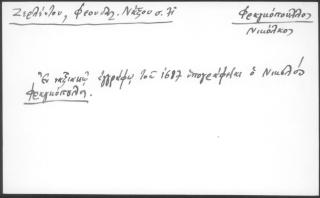 Ζερλέντου, Φεουδ. Νάξου σ. 
Φραγκόπουλλος
Νικόλαος
Ἐν ναξιακῷ ἐγγράφῳ τοῦ 1687 ὑπογράφεται ὁ Νικολός
Φραγκόπουλος.